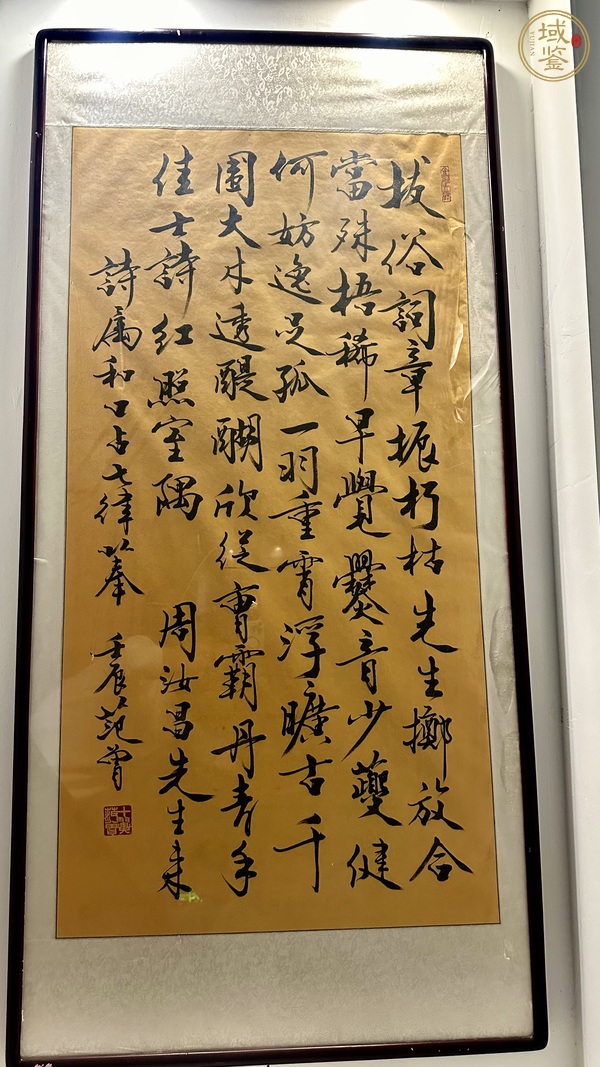 拔俗詞章振朽枯先生擲放合
當殊梧稀早覺爨音少蘷健
何妨逸足孤一羽重霄浮曠古千
圍大木透醍醐欣從曹霸丹青手
佳士詩紅照室隅 周汝昌先生來
詩属和口占七律以奉 壬辰范曾
域鑒